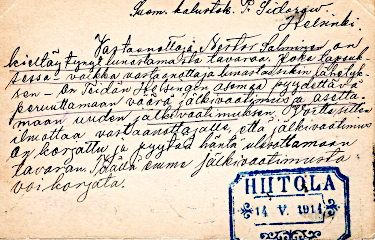 Suom. kalustok. P. Sidorow
Helsinki.
Vastaanottaja Nestor Salminen on
kieltäytynyt lunastamasta tavaraa. Koko lapsuk-
sessa vaikka vastaanottaja lunastaisikin lähetyk-
sen – On Teidän Helsingin asemaa pyydettävä
peruuttamaan väärä jälkivaatimus ja asetta-
maan uuden jälkivaatimuksen. Voitte sitten
ilmoittaa vastaanottajalle, että jälkivaatimus
on korjattu ja pyytää häntä ulosottamaan
tavaran. Täällä emme jälkivaatimusta
voi korjata.
HIITOLA
14 V. 1914